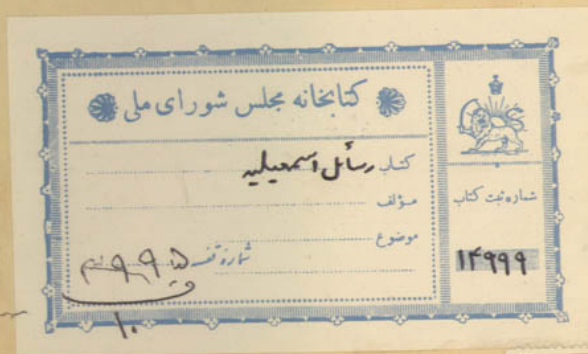 کتابخانه مجلس شورای ملی
کتاب رسائل اسمعیلیه
مؤلف
موضوع
شماره قفسه
شماره ثبت کتاب
۱۴۹۹۹
۱۰